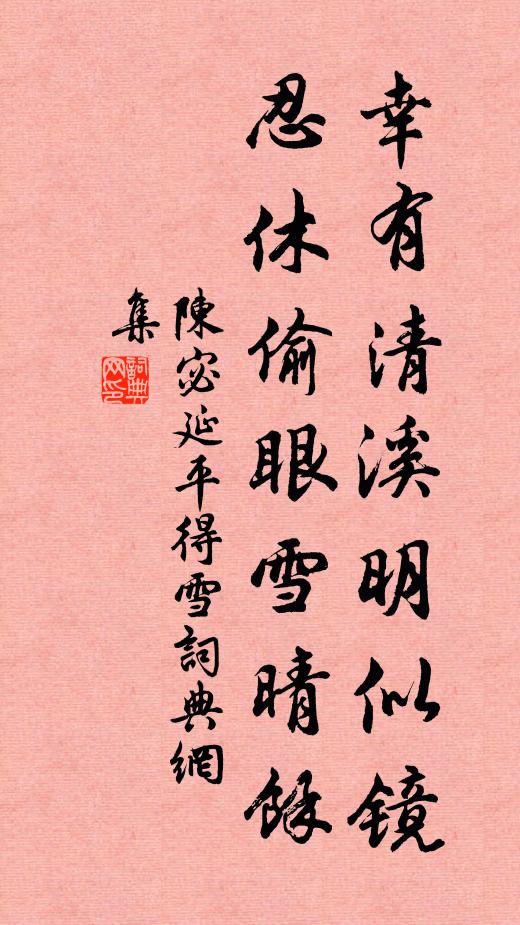 幸有清溪明似镜
忍休偷眼雪晴餘
陳宓延平得雪詞典網
集
詞典网印